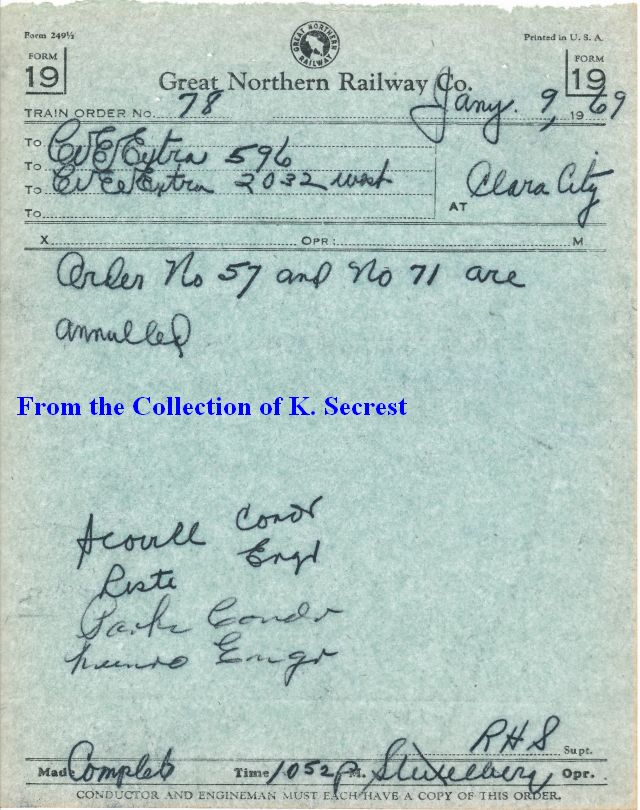 Form 249½ Printed in U. S. A.
GREAT NORTHERN RAILWAY
FORM 19 FORM 19
Great Northern Railway Co.
TRAIN ORDER No. 78 Jany. 9, 1969
To C&E Extra 596
To C&E Extra 2032 west
To
To
AT Clara City
X OPR: M
Order No 57 and No 71 are
annulled
From the Collection of K. Secrest
Condr
Engr
Parks Condr
Munro Engr
RHS Supt.
Made Complete Time 1052 P M. Opr.
CONDUCTOR AND ENGINEMAN MUST EACH HAVE A COPY OF THIS ORDER.